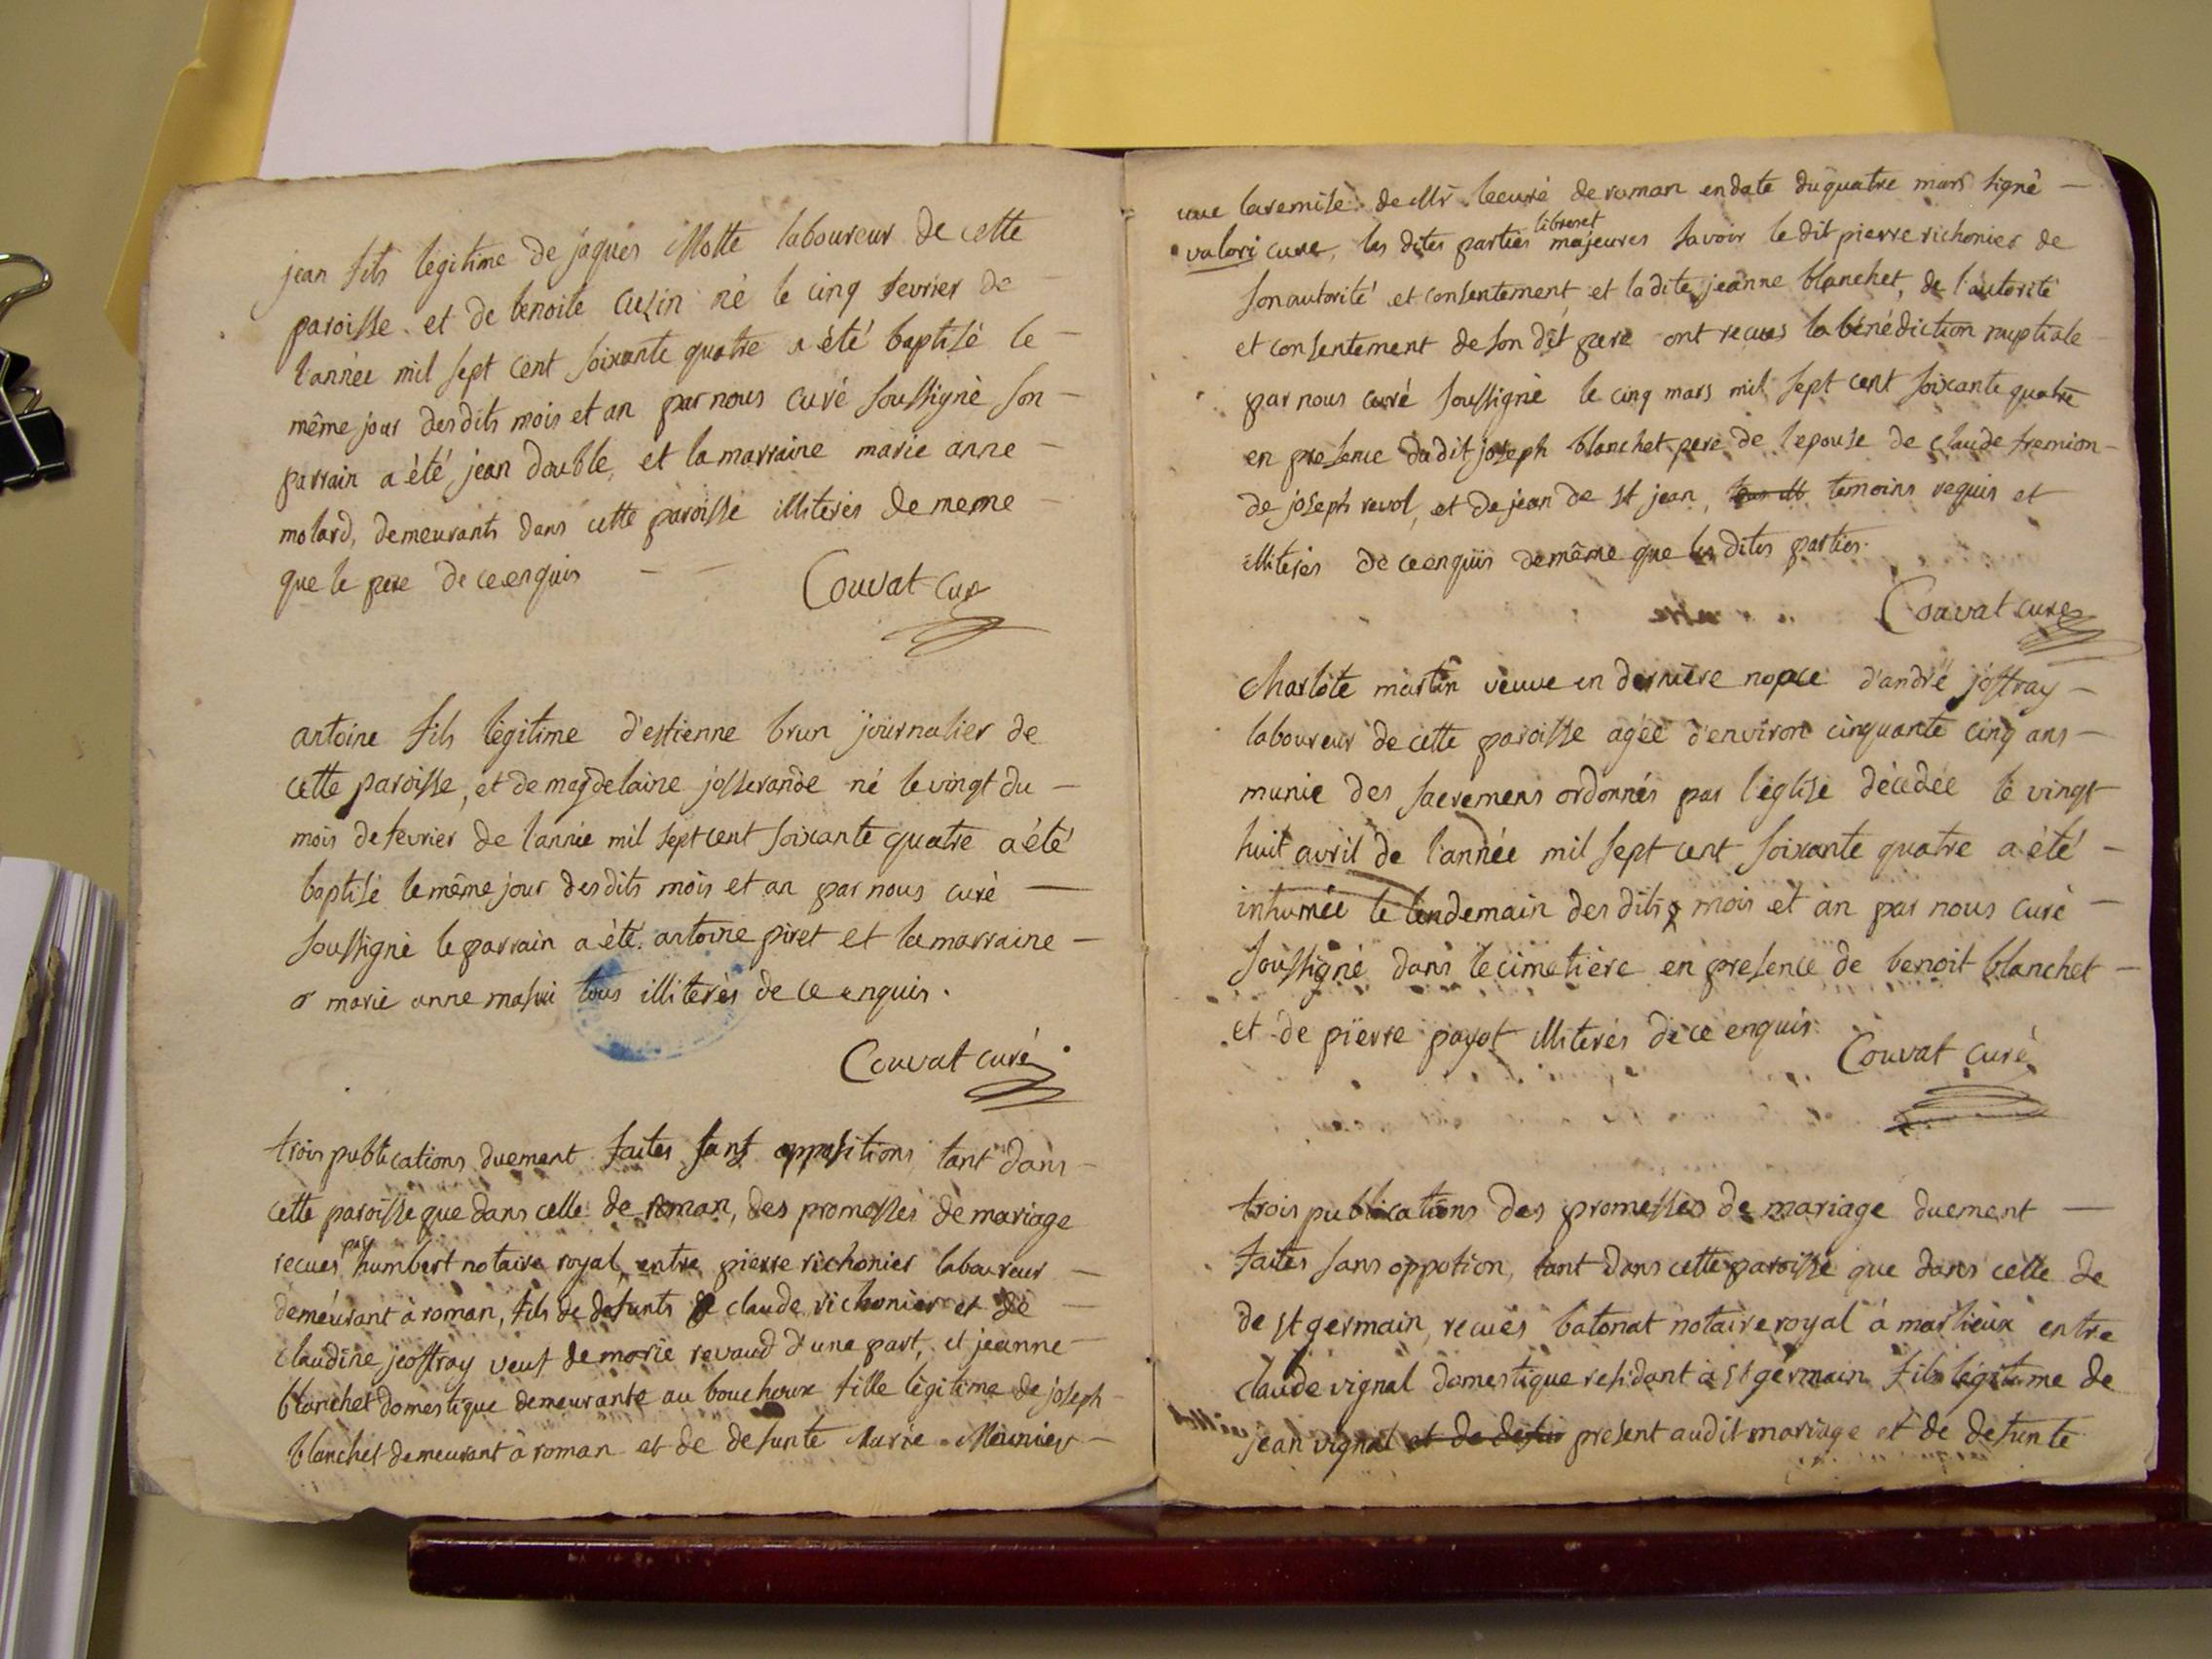 jean fils legitime de jaques Motte laboureur de cette
paroisse et de benoite Cuzin né le cinq fevrier de
l'année mil sept cent soixante quatre a été baptisé le
même jour desdits mois et an par nous curé soussigné son
parrain a été jean double, et la marraine marie anne
molard, demeurants dans cette paroisse illiterés de meme
que le pere de ce enquis
Couvat cur
antoine fils légitime d'estienne brun journalier de
cette paroisse, et de magdelaine josserande né le vingt du
mois de fevrier de l'année mil sept cent soixante quatre a été
baptisé le même jour desdits mois et an par nous curé
soussigné le parrain a été antoine piret et la marraine
marie anne tous illiterés de ce enquis.
Couvat curé
trois publications duement faites sans oppositions tant dans
cette paroisse que dans celle de roman, des promesses de mariage
recues par humbert notaire royal, entre pierre richonier laboureur
demeurant à roman, fils de defunts claude richonier et de
claudine jeoffray veuf de marie revaud d'une part, et jeanne
blanchet domestique demeurante au bouchoux fille légitime de joseph
blanchet demeurant à roman et de defunte Marie Meunier
vue la remise de Mr le curé de roman en date du quatre mars signé
valori cure, les dites parties libres et majeures savoir le dit pierre richonier de
son autorité et consentement et la dite jeanne blanchet, de l'autorité
et consentement de son dit pere ont recues la bénédiction nuptiale
par nous curé soussigné le cinq mars mil sept cent soixante quatre
en presence dudit joseph blanchet pere de l'epouse de claude fremion
de joseph revol, et de jean de st jean, temoins requis et
illiterés de ce enquis de même que les dites parties.
Couvat curé
charlote martin veuve en derniere nopce d'andré joffray
laboureur de cette paroisse agée d'environ cinquante cinq ans
munie des sacremens ordonnés par l'église décédée le vingt
huit avril de l'année mil sept cent soixante quatre a été
inhumée le lendemain des dits mois et an par nous curé
soussigné dans le cimetière en presence de benoit blanchet
et de pierre payot illiterés de ce enquis
Couvat curé
trois publications des promesses de mariage duement
faites sans oppotion, tant dans cette paroisse que dans celle de
de st germain, recues batonat notaire royal à marlieux entre
claude vignal domestique residant à st germain fils légitime de
jean vignal et de defun present audit mariage et de defunte